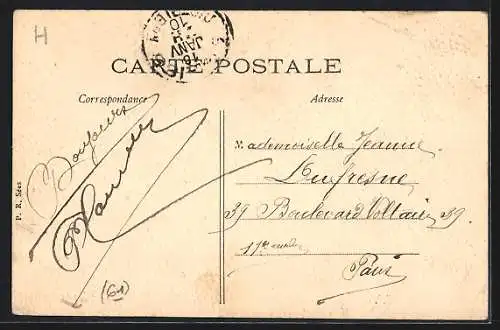 H
16
JANV
10
CARTE POSTALE
Correspondance
Adresse
Bonjours
Mademoiselle Jeanne
Dufresne
39 Boulevard Voltaire 39
11me
Paris
P. R. Sées
(61)